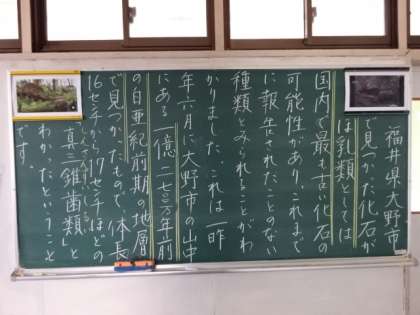 福井県大野市
で見つかった化石が
は乳類としては
国内で最も古い化石の
可能性があり、これまで
に報告されたことのない
種類とみられることがわ
かりました。これは一昨
年六月に大野市の山中
にある一億二七〇〇万年前
の白亜紀前期の地層
で見つかたもので、体長
16センチから17センチほどの
真三錐歯類」と
わかったということ
です。